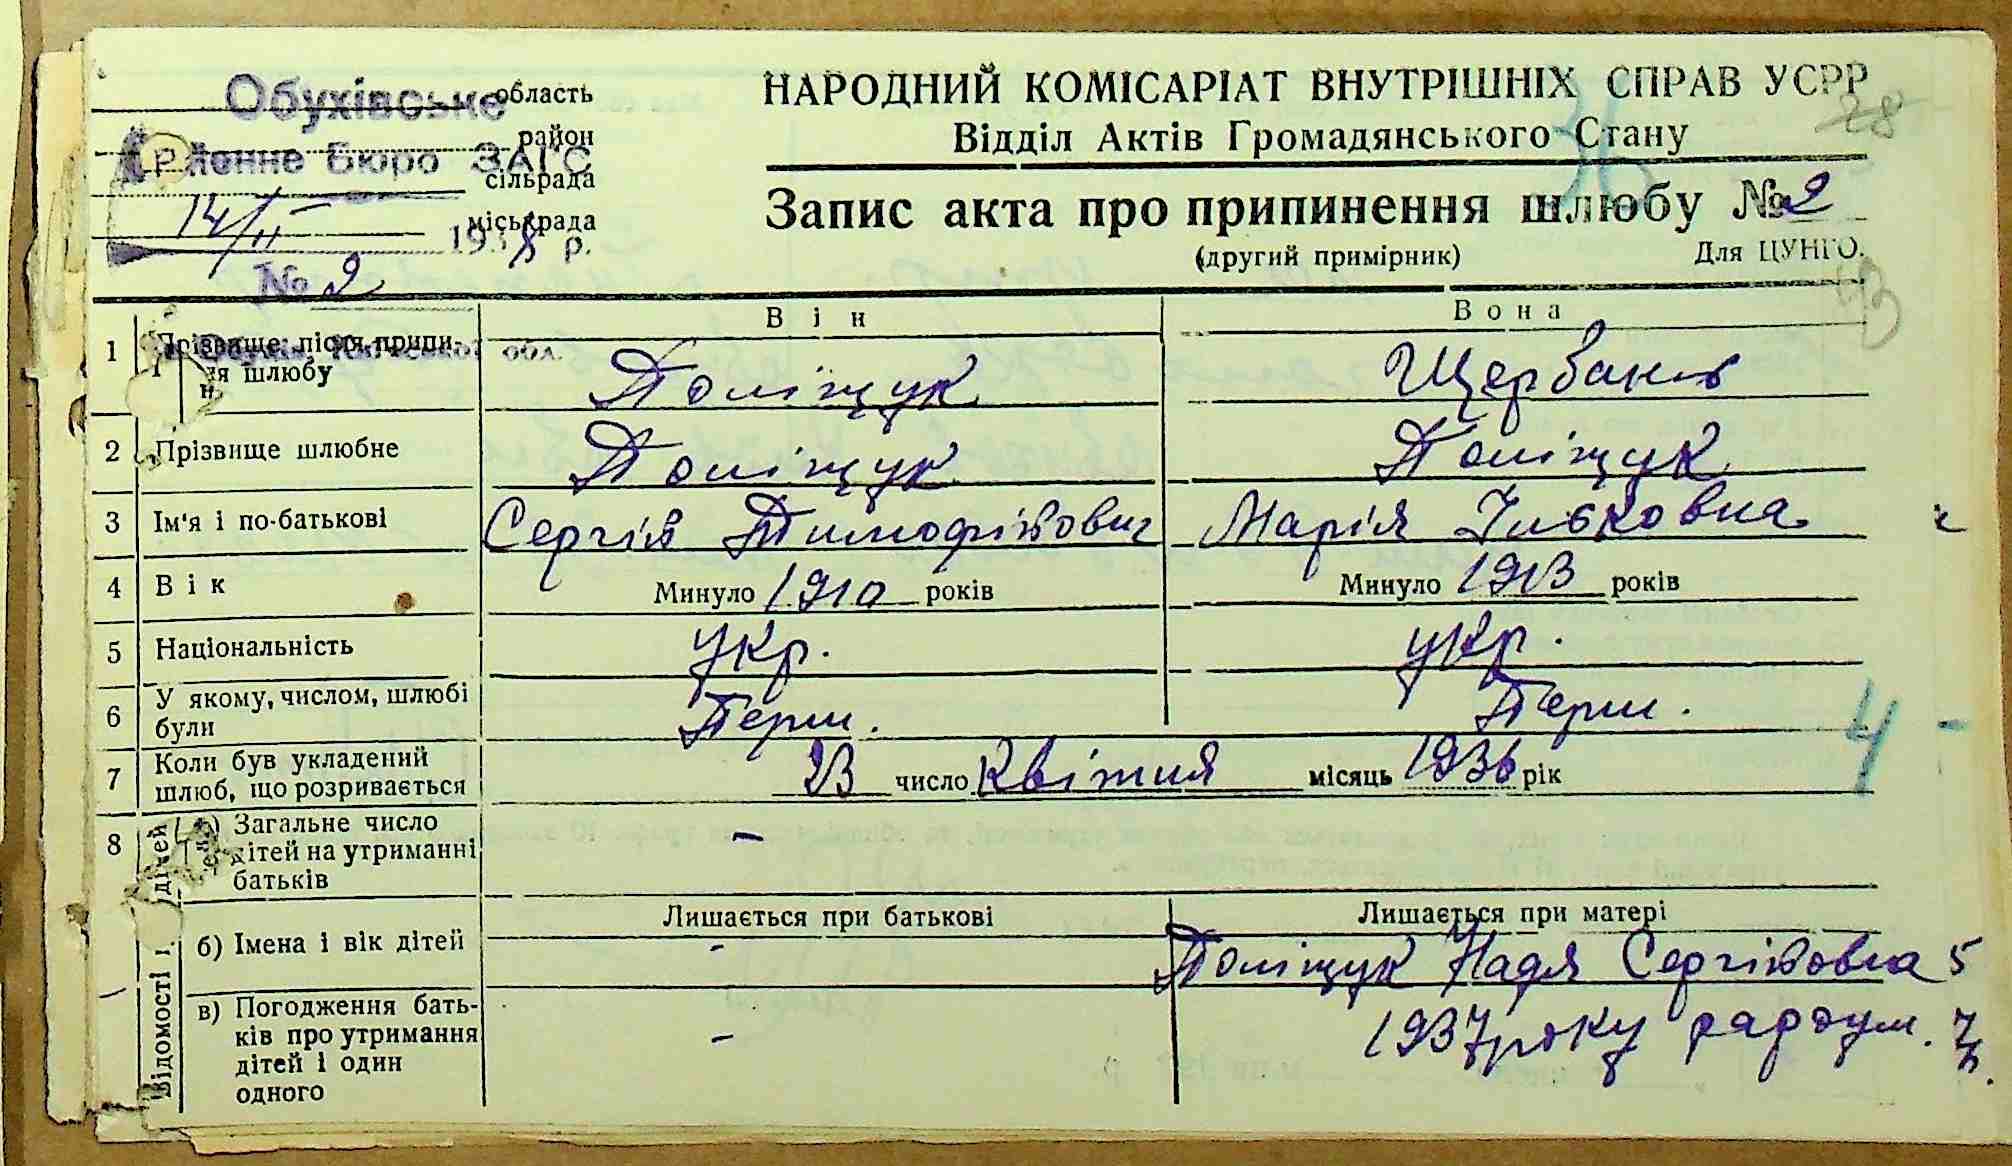 Обухівське область
район
Районне Бюро ЗАГС
сільрада
14/II міськрада
1938 р.
№ 2
НАРОДНИЙ КОМІСАРІАТ ВНУТРІШНІХ СПРАВ УСРР
28
Відділ Актів Громадянського Стану
Запис акта про припинення шлюбу № 2
(другий примірник) Для ЦУНГО.
Він Вона
1 Прізвище після припинення шлюбу Поліщук Щербань
обл.
2 Прізвище шлюбне Поліщук Поліщук
3 Ім'я і по-батькові Сергій Тимофійович Марія Ільковна
4 Вік Минуло 1910 років Минуло 1913 років
5 Національність укр. укр.
6 У якому, числом, шлюбі
були Перш. Перш.
4 -
7 Коли був укладений
шлюб, що розривається 23 число Квітня місяць 1936 рік
8 Відомості дітей
а) Загальне число
дітей на утриманні
батьків -
Лишається при батькові Лишається при матері
б) Імена і вік дітей - Поліщук Надя Сергійовна 5
1937 року
в) Погодження бать-
ків про утримання
дітей і один
одного -